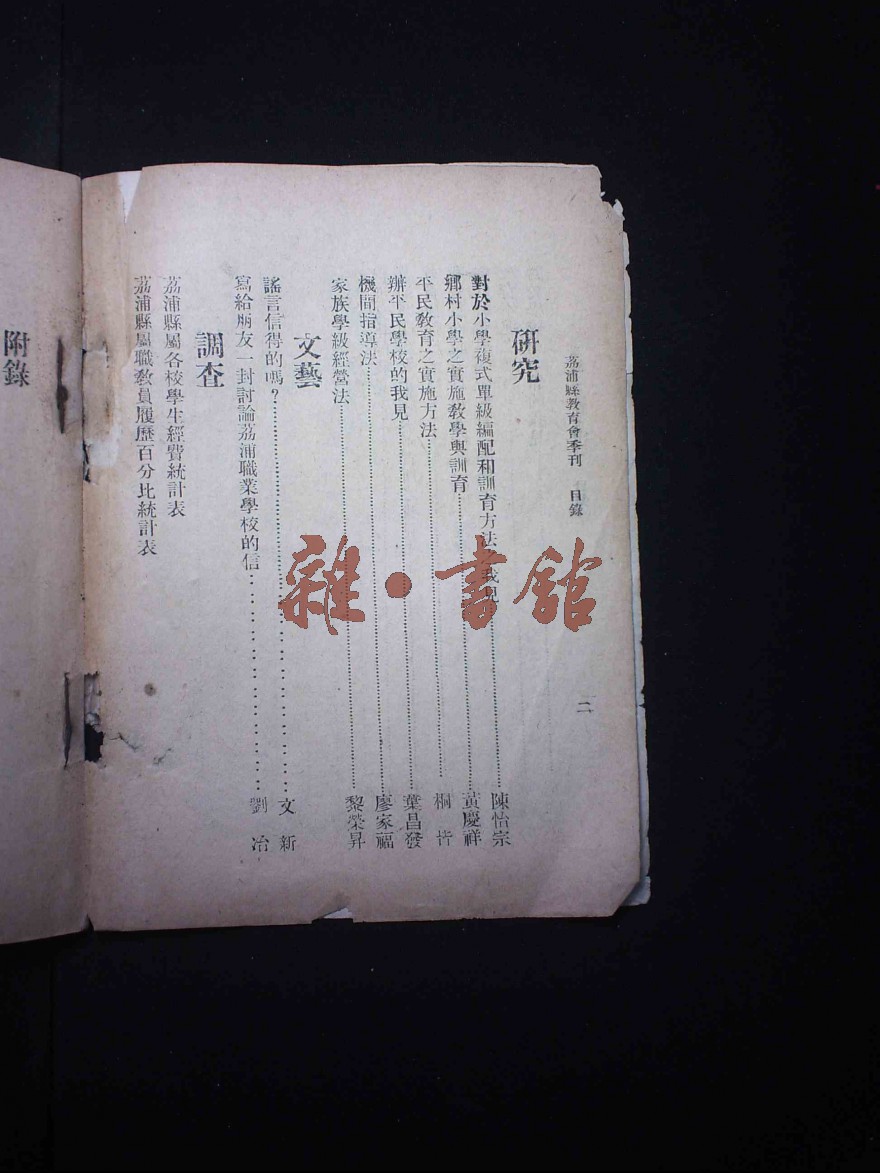 荔浦縣敎育會季刊 目錄
二
研究
對於小學複式單級編配和訓育方法 我見 陳怡宗
鄉村小學之實施敎學與訓育 黃慶祥
平民敎育之實施方法 桐
辦平民學校的我見 葉昌發
機間指導法 廖家福
家族學級經營法 黎榮昇
文藝
謠言信得的嗎？ 文新
寫給炳友一封討論荔浦職業學校的信 劉冶
調查
荔浦縣屬各校學生經費統計表
荔浦縣屬職敎員履歷百分比統計表
附錄
雜·書館